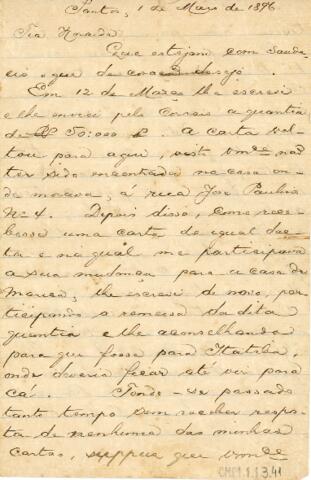 Santos, 1 de Maio de 1896
Tia
Que estejam com saude
é o que de coração desejo.
Em 12 de Março lhe escrevi
e lhe enviei pelo Correio a quantia
de 50:000 . A carta vol-
tou para aqui, visto Vmce não
ter sido encontrada na casa on-
de morava, á rua José Paulino
No 4. Depois disso, como rece-
besse uma carta de igual da-
ta e na qual me participava
a sua mudança para a casa de
, lhe escrevi de novo, par-
ticipando a remessa da dita
quantia e lhe aconselhando
para que fosse para Itatiba,
onde deveria ficar até vir para
cá. Tendo-se passado
tanto tempo sem receber respos-
ta de nenhuma das minhas
cartas, suppuz que Vmce
CMP1.1.3.41